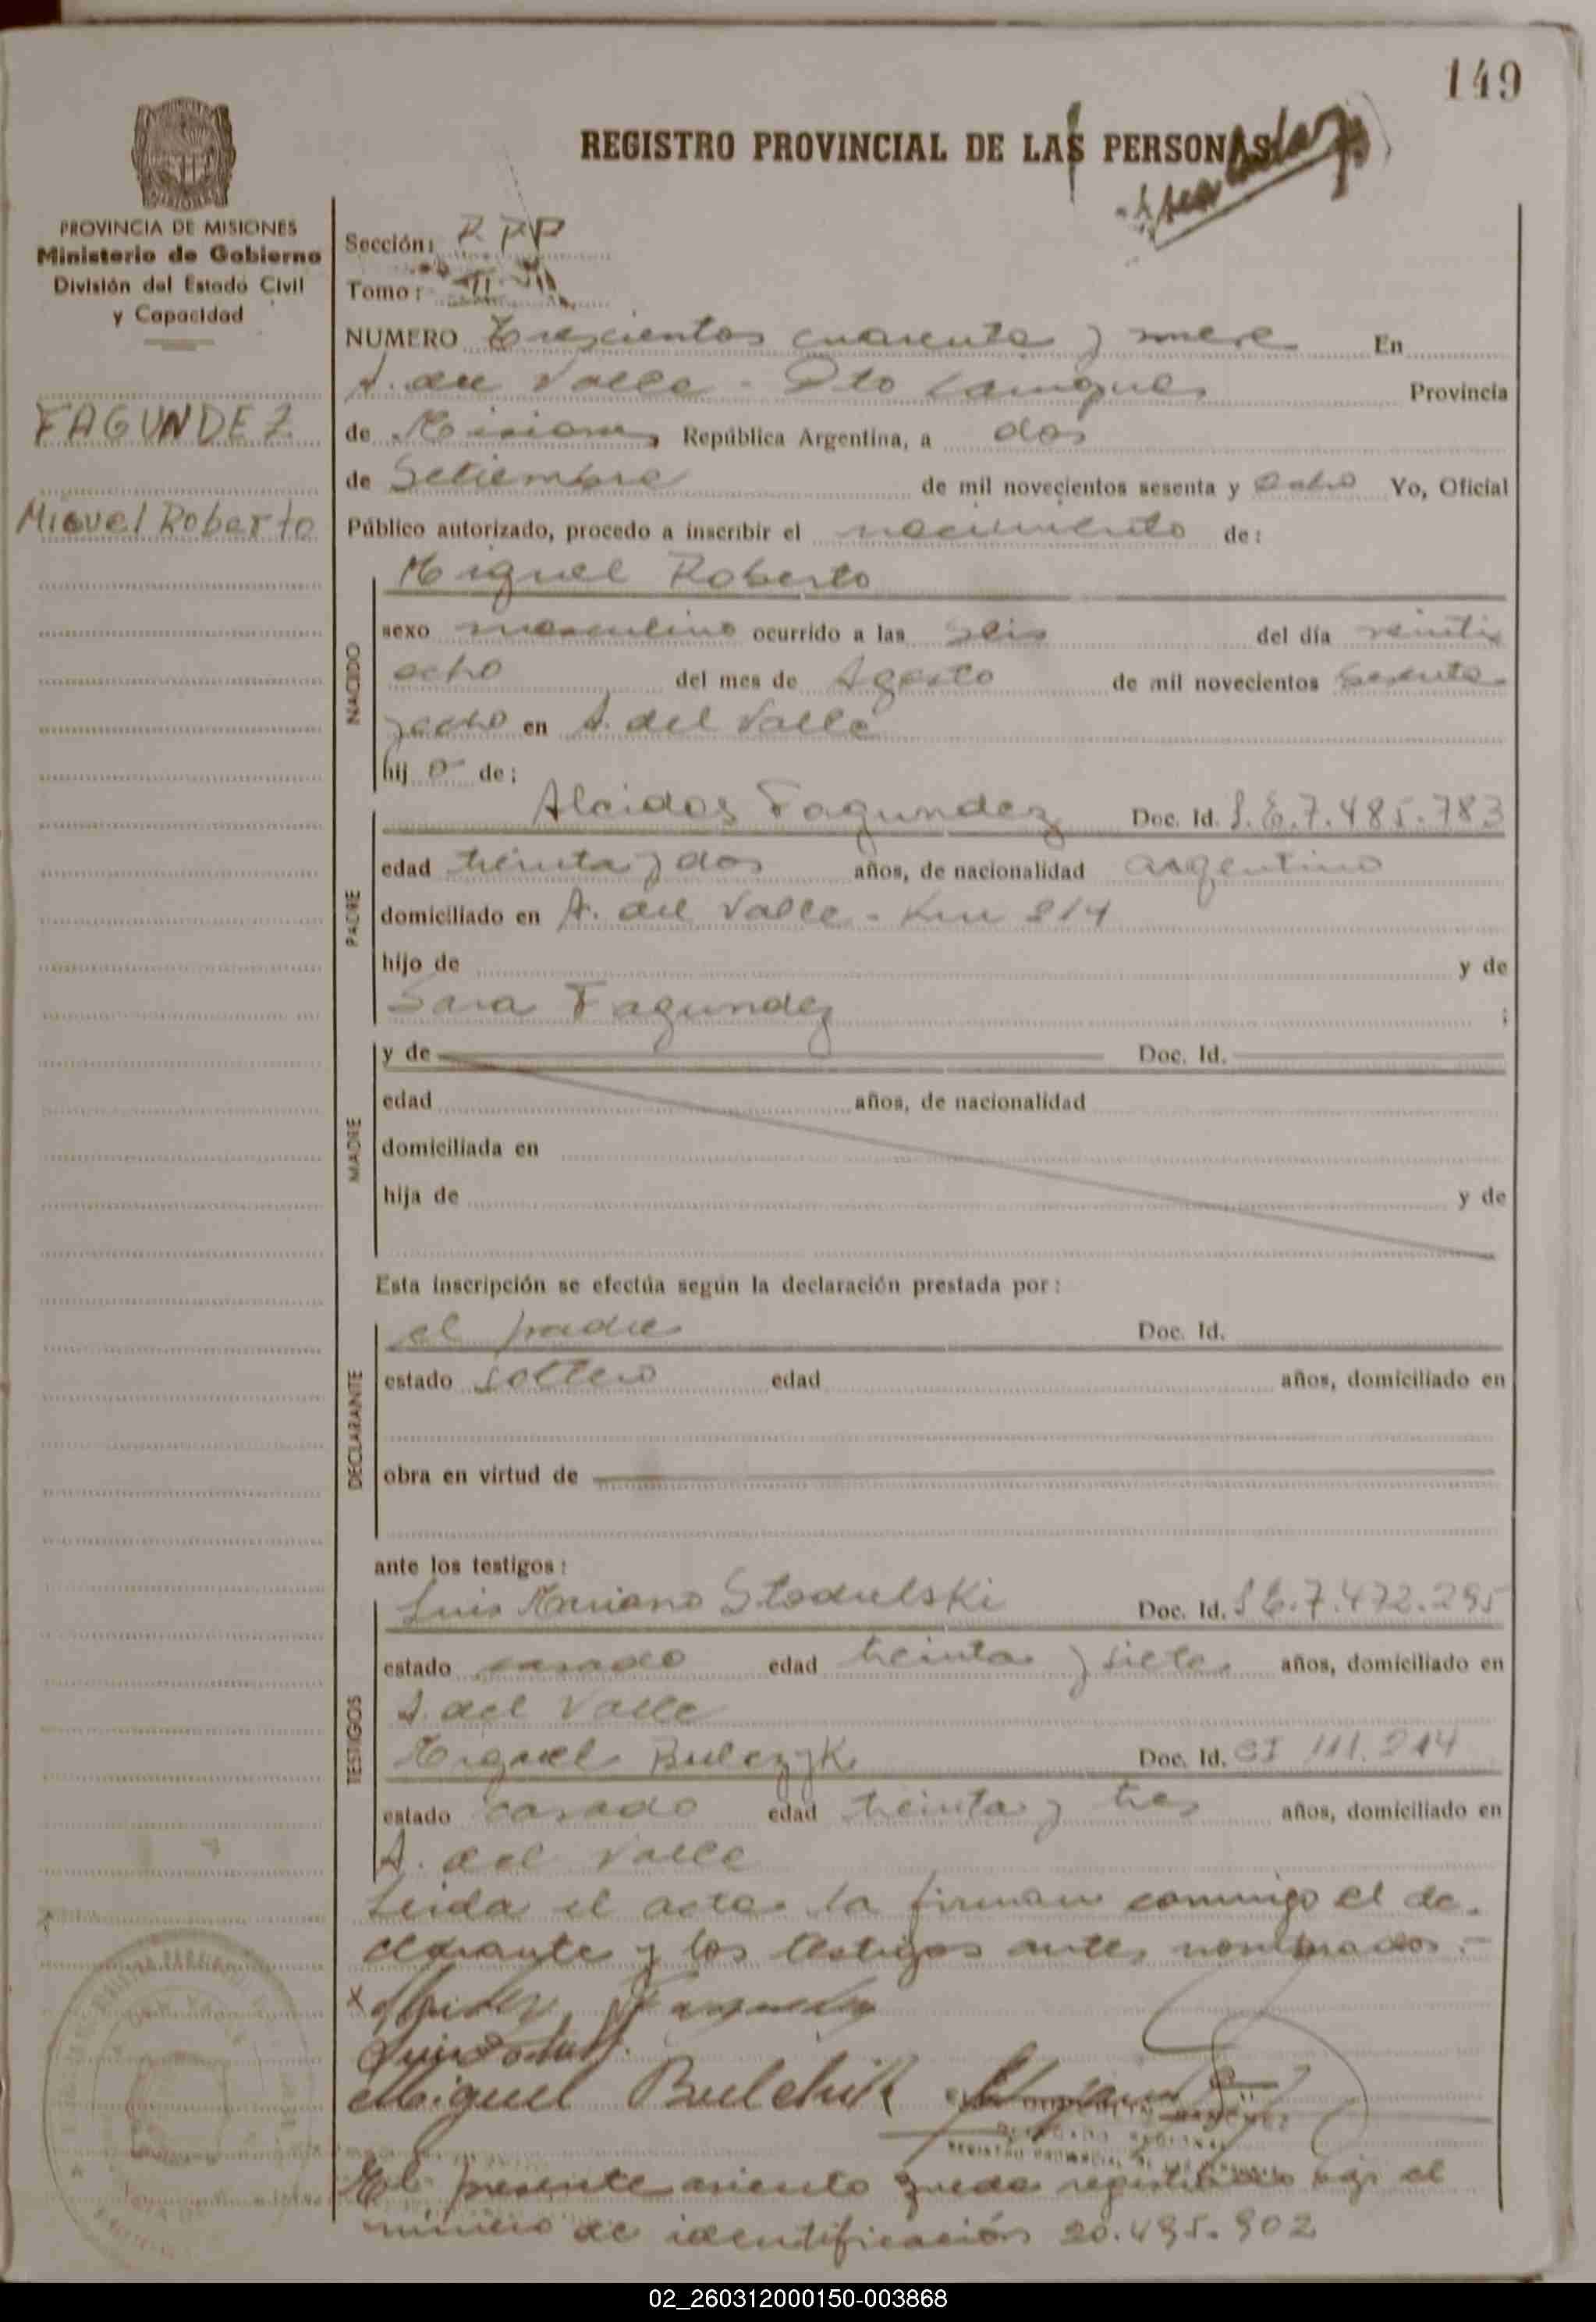 149
REGISTRO PROVINCIAL DE LAS PERSONAS
PROVINCIA DE MISIONES
Ministerio de Gobierno
División del Estado Civil
y Capacidad
FAGUNDEZ
Miguel Roberto
Sección: RPP
Tomo:
NUMERO Trescientos cuarenta y nueve En
A. del Valle - Dto Cainguas Provincia
de Misiones, República Argentina, a dos
de Setiembre de mil novecientos sesenta y ocho Yo, Oficial
Público autorizado, procedo a inscribir el nacimiento de:
NACIDO
Miguel Roberto
sexo masculino ocurrido a las seis del día veinti
ocho del mes de Agosto de mil novecientos sesenta
y ocho en A. del Valle
hij o de:
PADRE
Alcides Fagundez Doc. Id. L.E. 7.485.783
edad treinta y dos años, de nacionalidad argentino
domiciliado en A. del Valle - Km 214
hijo de y de
Sara Fagundez ;
MADRE
y de Doc. Id.
edad años, de nacionalidad
domiciliada en
hija de y de
Esta inscripción se efectúa según la declaración prestada por:
DECLARANTE
el padre Doc. Id.
estado soltero edad años, domiciliado en
obra en virtud de
ante los testigos:
TESTIGOS
Luis Mariano Stodulski Doc. Id. L E. 7.472.295
estado casado edad treinta y siete años, domiciliado en
A. del Valle
Miguel Bulczyk Doc. Id. CI 111.214
estado casado edad treinta y tres años, domiciliado en
A. del Valle
Leida el acta la firman conmigo el de-
clarante y los testigos antes nombrados.-
Miguel Bulchik
DELEGADO REGIONAL
REGISTRO PROVINCIAL DE LAS
El presente asiento queda registrado bajo el
número de identificación 20.495.902
02_260312000150-003868